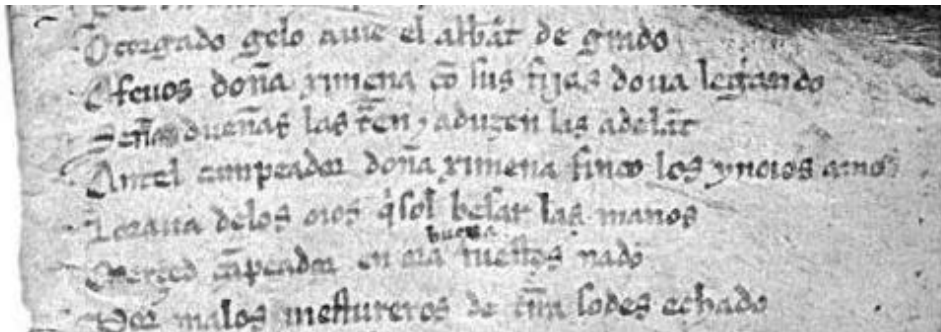 Otorgado gelo auie el abbat de grado
Afeuos doña ximena cõ sus fijas do ua legando
Señas dueñas las traẽ & aduzen las adelãt
Antel campeador doña ximena finco los ynoios amos
Loraua delos oios q̃sol besar las manos
Merçed cãpeador en ora buena fuestes nado
Por malos mestureros de tr̃ra sodes echado